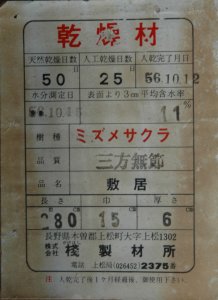 乾燥材
天然乾燥日数 人工乾燥日数 人乾完了月日
50日 25日 56.10.12
水分測定日 表面より3cm平均含水率
56.10.15 11%
樹種 ミズメサクラ
品質 三方無節
品名 敷居
長さ 巾 厚さ
280 15 6
cm cm cm
長野県木曽郡上松町大字上松1302
株式会社 桟製材所
電話 上松局(026452)2375番
注 人乾完了後1ヶ月経過後、御使用下さい。